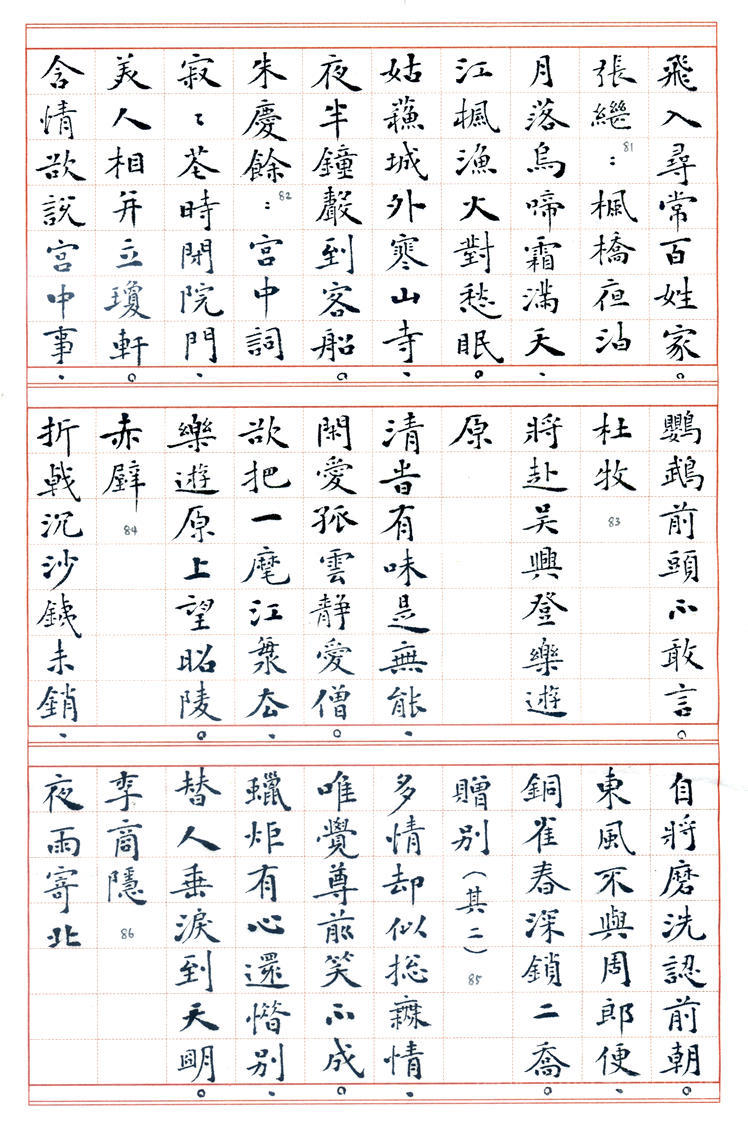 飛入尋常百姓家。
張繼：楓橋夜泊 81
月落烏啼霜滿天、
江楓漁火對愁眠。
姑蘓城外寒山寺、
夜半鐘聲到客船。
朱慶餘：宮中詞 82
寂〻荃時閉院門、
美人相并立瓊軒。
含情欲說宮中事、
鸚鵡前頭不敢言。
杜牧 83
將赴吴興登樂遊
原
清旹有味是無能、
閑愛孤雲靜愛僧。
欲把一麾江海去、
樂遊原上望昭陵。
赤壁 84
折戟沉沙銕未銷、
自將磨洗認前朝。
東風不與周郎便、
銅雀春深鎖二喬。
贈別（其二） 85
多情却似搃無情、
唯覺尊前笑不成。
蠟炬有心還惜別、
替人垂淚到天明。
李商隱 86
夜雨寄北